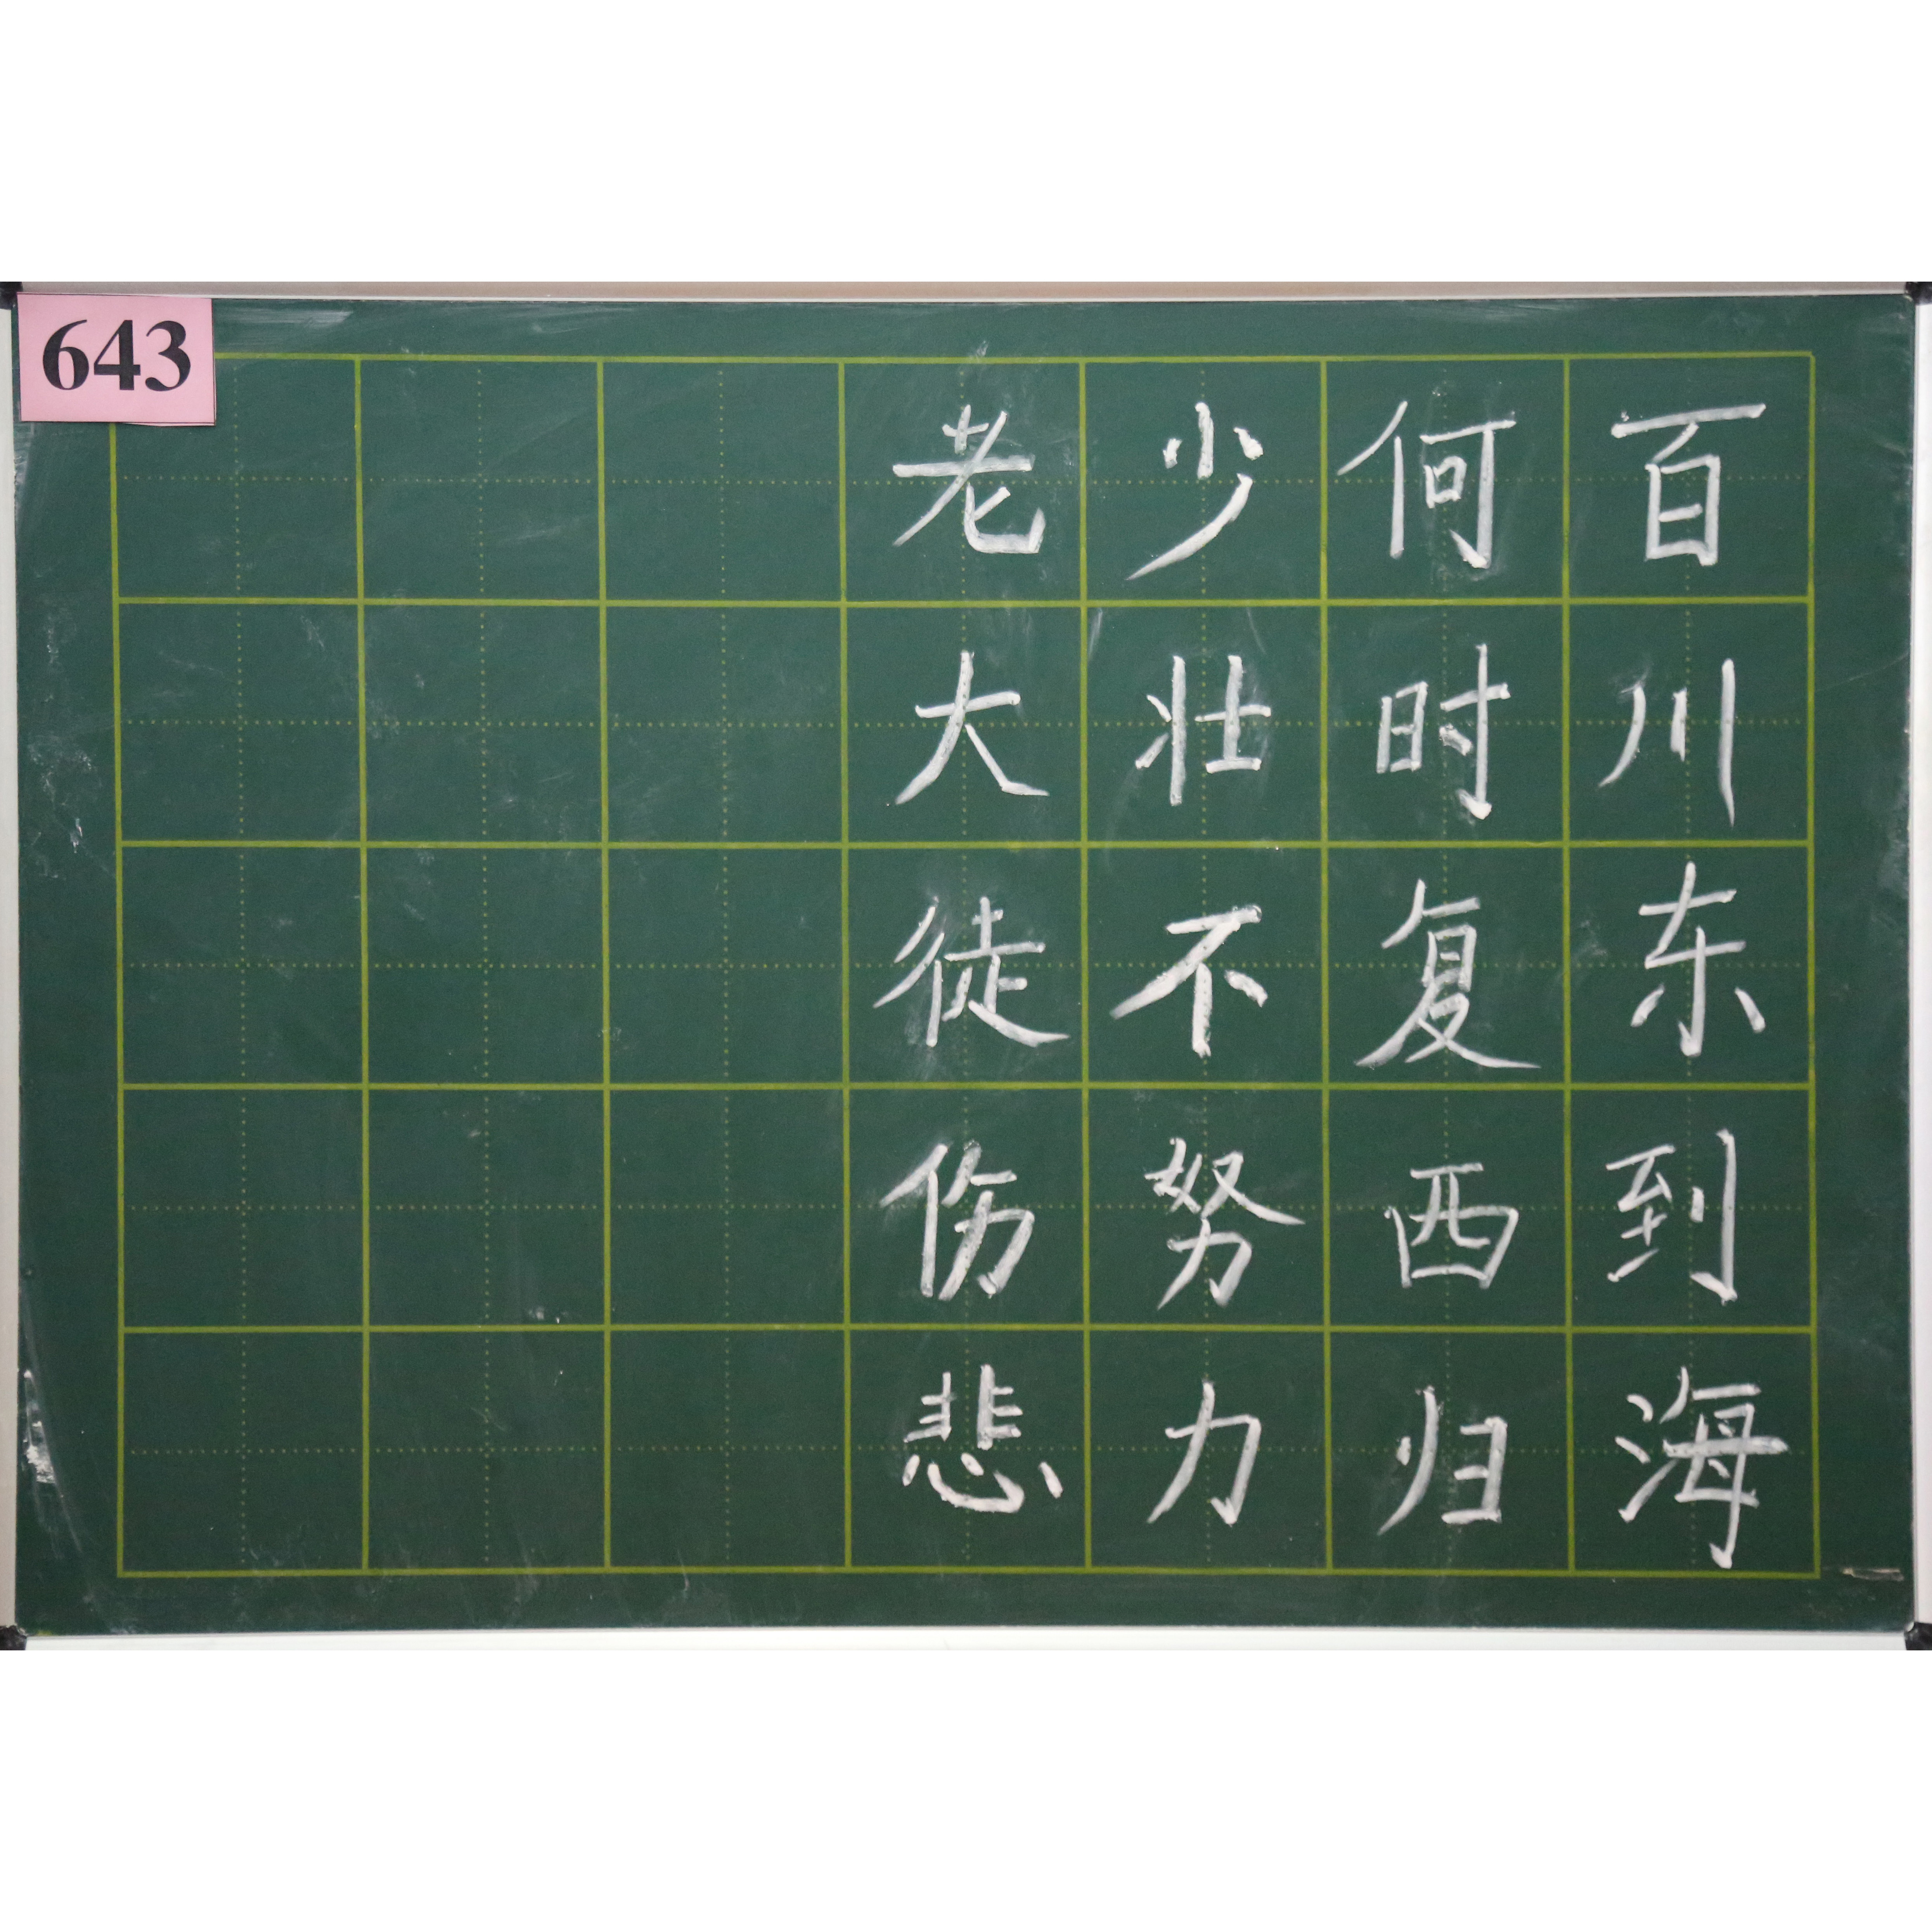 643
百川东到海
何时复西归
少壮不努力
老大徒伤悲